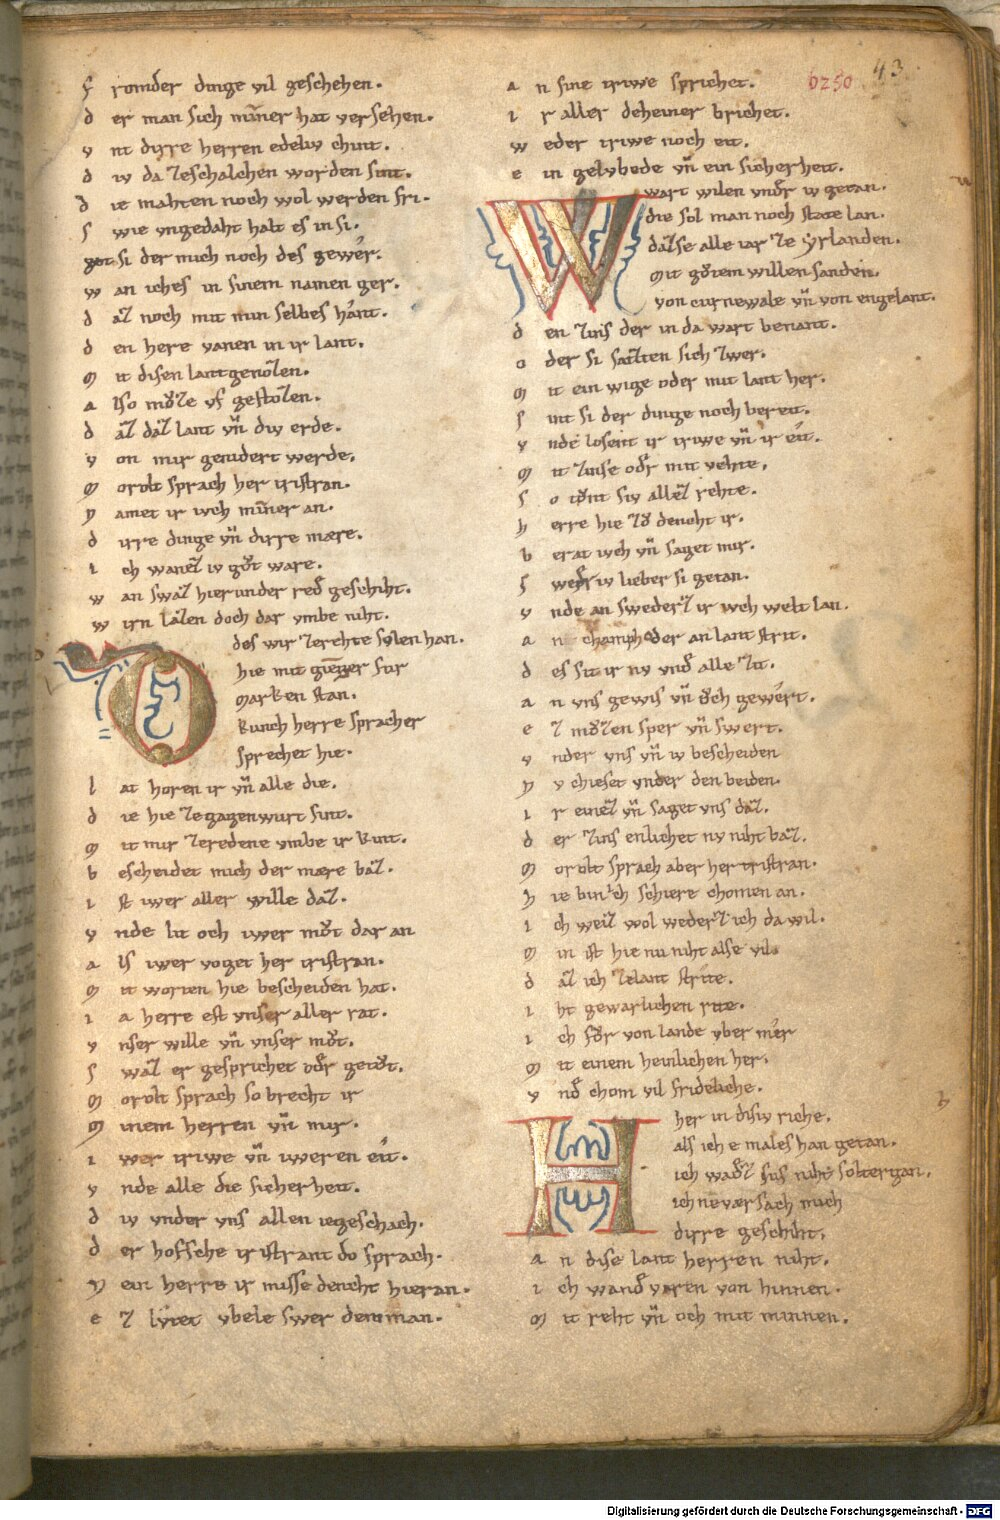 43
6250
f romder dinge vil geschehen.
d er man sich min̄er hat versehen.
v nt dirre herren edeliv chint.
d iv da ze schalchen worden sint.
d ie mahten noch wol werden fri.
s wie vngedaht halt es in si.
got si der mich noch des gewer.
w an iches in sinem namen ger.
d aʒ noch mit min selbes hant.
d en here vanen in ir lant.
m it disen lantgenoʒen.
a lso mvͦʒe vf gestoʒen.
d aʒ daʒ lant vn̄ div erde.
v on mir genidert werde.
m orolt sprach her tristran.
n amet ir iwch min̄er an.
d irre dinge vn̄ dirre mære.
i ch waneʒ iv gvͦt ware.
w an swaʒ hier under red geschiht.
w irn laʒen doch dar vmbe niht.
O
des wir ze rechte svlen han.
hie mit gieng er fur
marken stan.
kunch herre sprach er
sprechet hie.
l at horen ir vn̄ alle die.
d ie hie ze gagenwurt sint.
m it mir ze redene vmbe ir kint.
b escheidet mich der mære baʒ.
i st iwer aller wille daʒ.
v nde lit och iwer mvͦt dar an
a ls iwer voget her tristran.
m it worten hie bescheiden hat.
i a herre est vnser aller rat.
v nser wille vn̄ vnser mvͦt.
s waʒ er gesprichet od̄r getvͦt.
m orolt sprach so brecht ir
m inem herren vn̄ mir.
i wer triwe vn̄ iweren eit.
v nde alle die sicherheit.
d iv vnder vns allen ie geschach.
d er hofsche tristrant do sprach.
n ein herre ir misse dencht hieran.
e ʒ lvtet vbele swer dem man.
a n sine triwe sprichet.
i r aller deheiner brichet.
w eder triwe noch eit.
e in gelvbede vn̄ ein sicherheit.
W
wart wilen vnd̄r iv getan.
die sol man noch stæte lan.
daʒ se alle iar ze yrlanden.
mit gvͦtem willen sanden.
von curnewale vn̄ von engelant.
d en zins der in da wart benant.
o der si saʒten sich zwer.
m it ein wige oder mit lant her.
s int si der dinge noch bereit.
v nde losent ir triwe vn̄ ir eit.
m it zinse od̄r mit vehte.
s o tvͦnt siv alleʒ rehte.
h erre hie zvͦ dencht ir.
b erat iwch vn̄ saget mir.
s weder iw lieber si getan.
v nde an swederʒ ir iwch welt lan.
a n champh oder an lant strit.
d es sit ir nv vnd̄ alle zit.
a n vns gewis vn̄ ovch gewert.
e ʒ mvͦʒen sper vn̄ swert.
v nder vns vn̄ iv bescheiden
n v chieset vnder den beiden.
i r eineʒ vn̄ saget vns daʒ.
d er zins enlichet nv niht baʒ.
m orolt sprach aber her tristran.
h ie bin ich schiere chomen an.
i ch weiʒ wol wederʒ ich da wil.
m in ist hie nu niht alse vil.
d aʒ ich ze lant strite.
i ht gewarlichen rite.
i ch fvͦr von lande vber mer
m it einem heinlichen her.
v nd̄ chom vil frideliche.
H
her in disiv riche.
als ich e males han getan.
ich wand̄ʒ sus niht solte ergan.
ich ne versach mich
dirre geschiht.
a n dise lant herren niht.
i ch wand̄ varen von hinnen.
m it reht vn̄ och mit minnen.
Digitalisierung gefördert durch die Deutsche Forschungsgemeinschaft - DFG